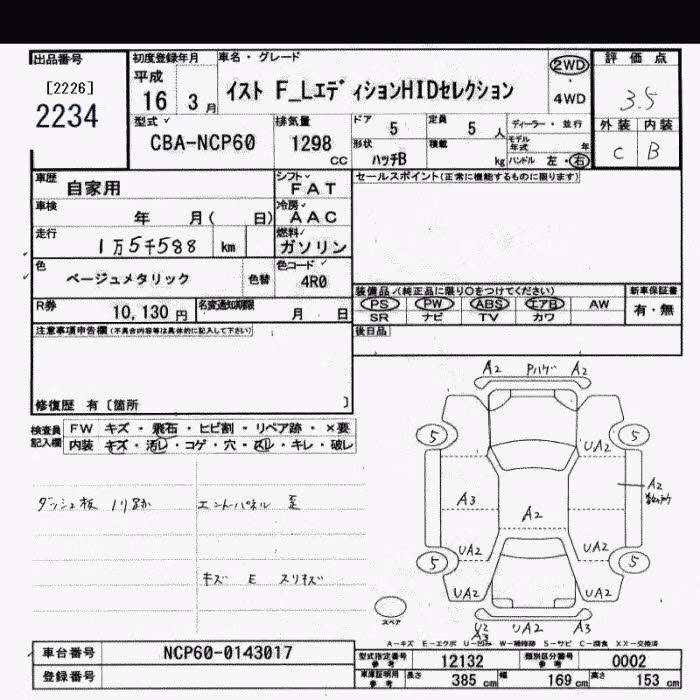 出品番号
[2226]
2234
初度登録年月
平成
16 3月
車名・グレード
イスト F_LエディションHIDセレクション
2WD
・
4WD
評価点
3.5
外装 内装
C B
型式
CBA-NCP60
排気量
1298
CC
ドア
5
定員
5 人
ディーラー・並行
形状
ハッチB
積載
kg
モデル年式 年
ハンドル 左・右
車歴
自家用
シフト
FAT
車検
年 月( 日)
冷房
AAC
走行
1万5千588 km
燃料
ガソリン
色
ベージュメタリック
色替
色コード
4R0
R券
10,130 円
名変通知期限
月 日
セールスポイント(正常に機能するものに限ります)
装備品 (純正品に限り○をつけてください)
PS PW ABS エアB AW
SR ナビ TV カワ
新車保証書
有・無
後日品
注意事項申告欄(不具合内容等は具体的に記入して下さい)
修復歴 有[箇所 ]
検査員
記入欄
FW キズ・飛石・ヒビ割・リペア跡・×要
内装 キズ・汚レ・コゲ・穴・スレ・キレ・破レ
ダッシュ板 ノリ跡
エンドパネル 歪
キズ E スリキズ
A2 Pハゲ A2
5 5
UA2
A2
A3
A2
UA2 UA2
5 5
UA2 UA2
スペア
U2 UA2 A3
A3
A-キズ E-エクボ U-凹み W-補修跡 S-サビ C-腐食 XX-交換済
車台番号
NCP60-0143017
登録番号
型式指定番号
参考
12132
類別区分番号
参考
0002
車庫証明用
参考
長さ 385 cm 幅 169 cm 高さ 153 cm